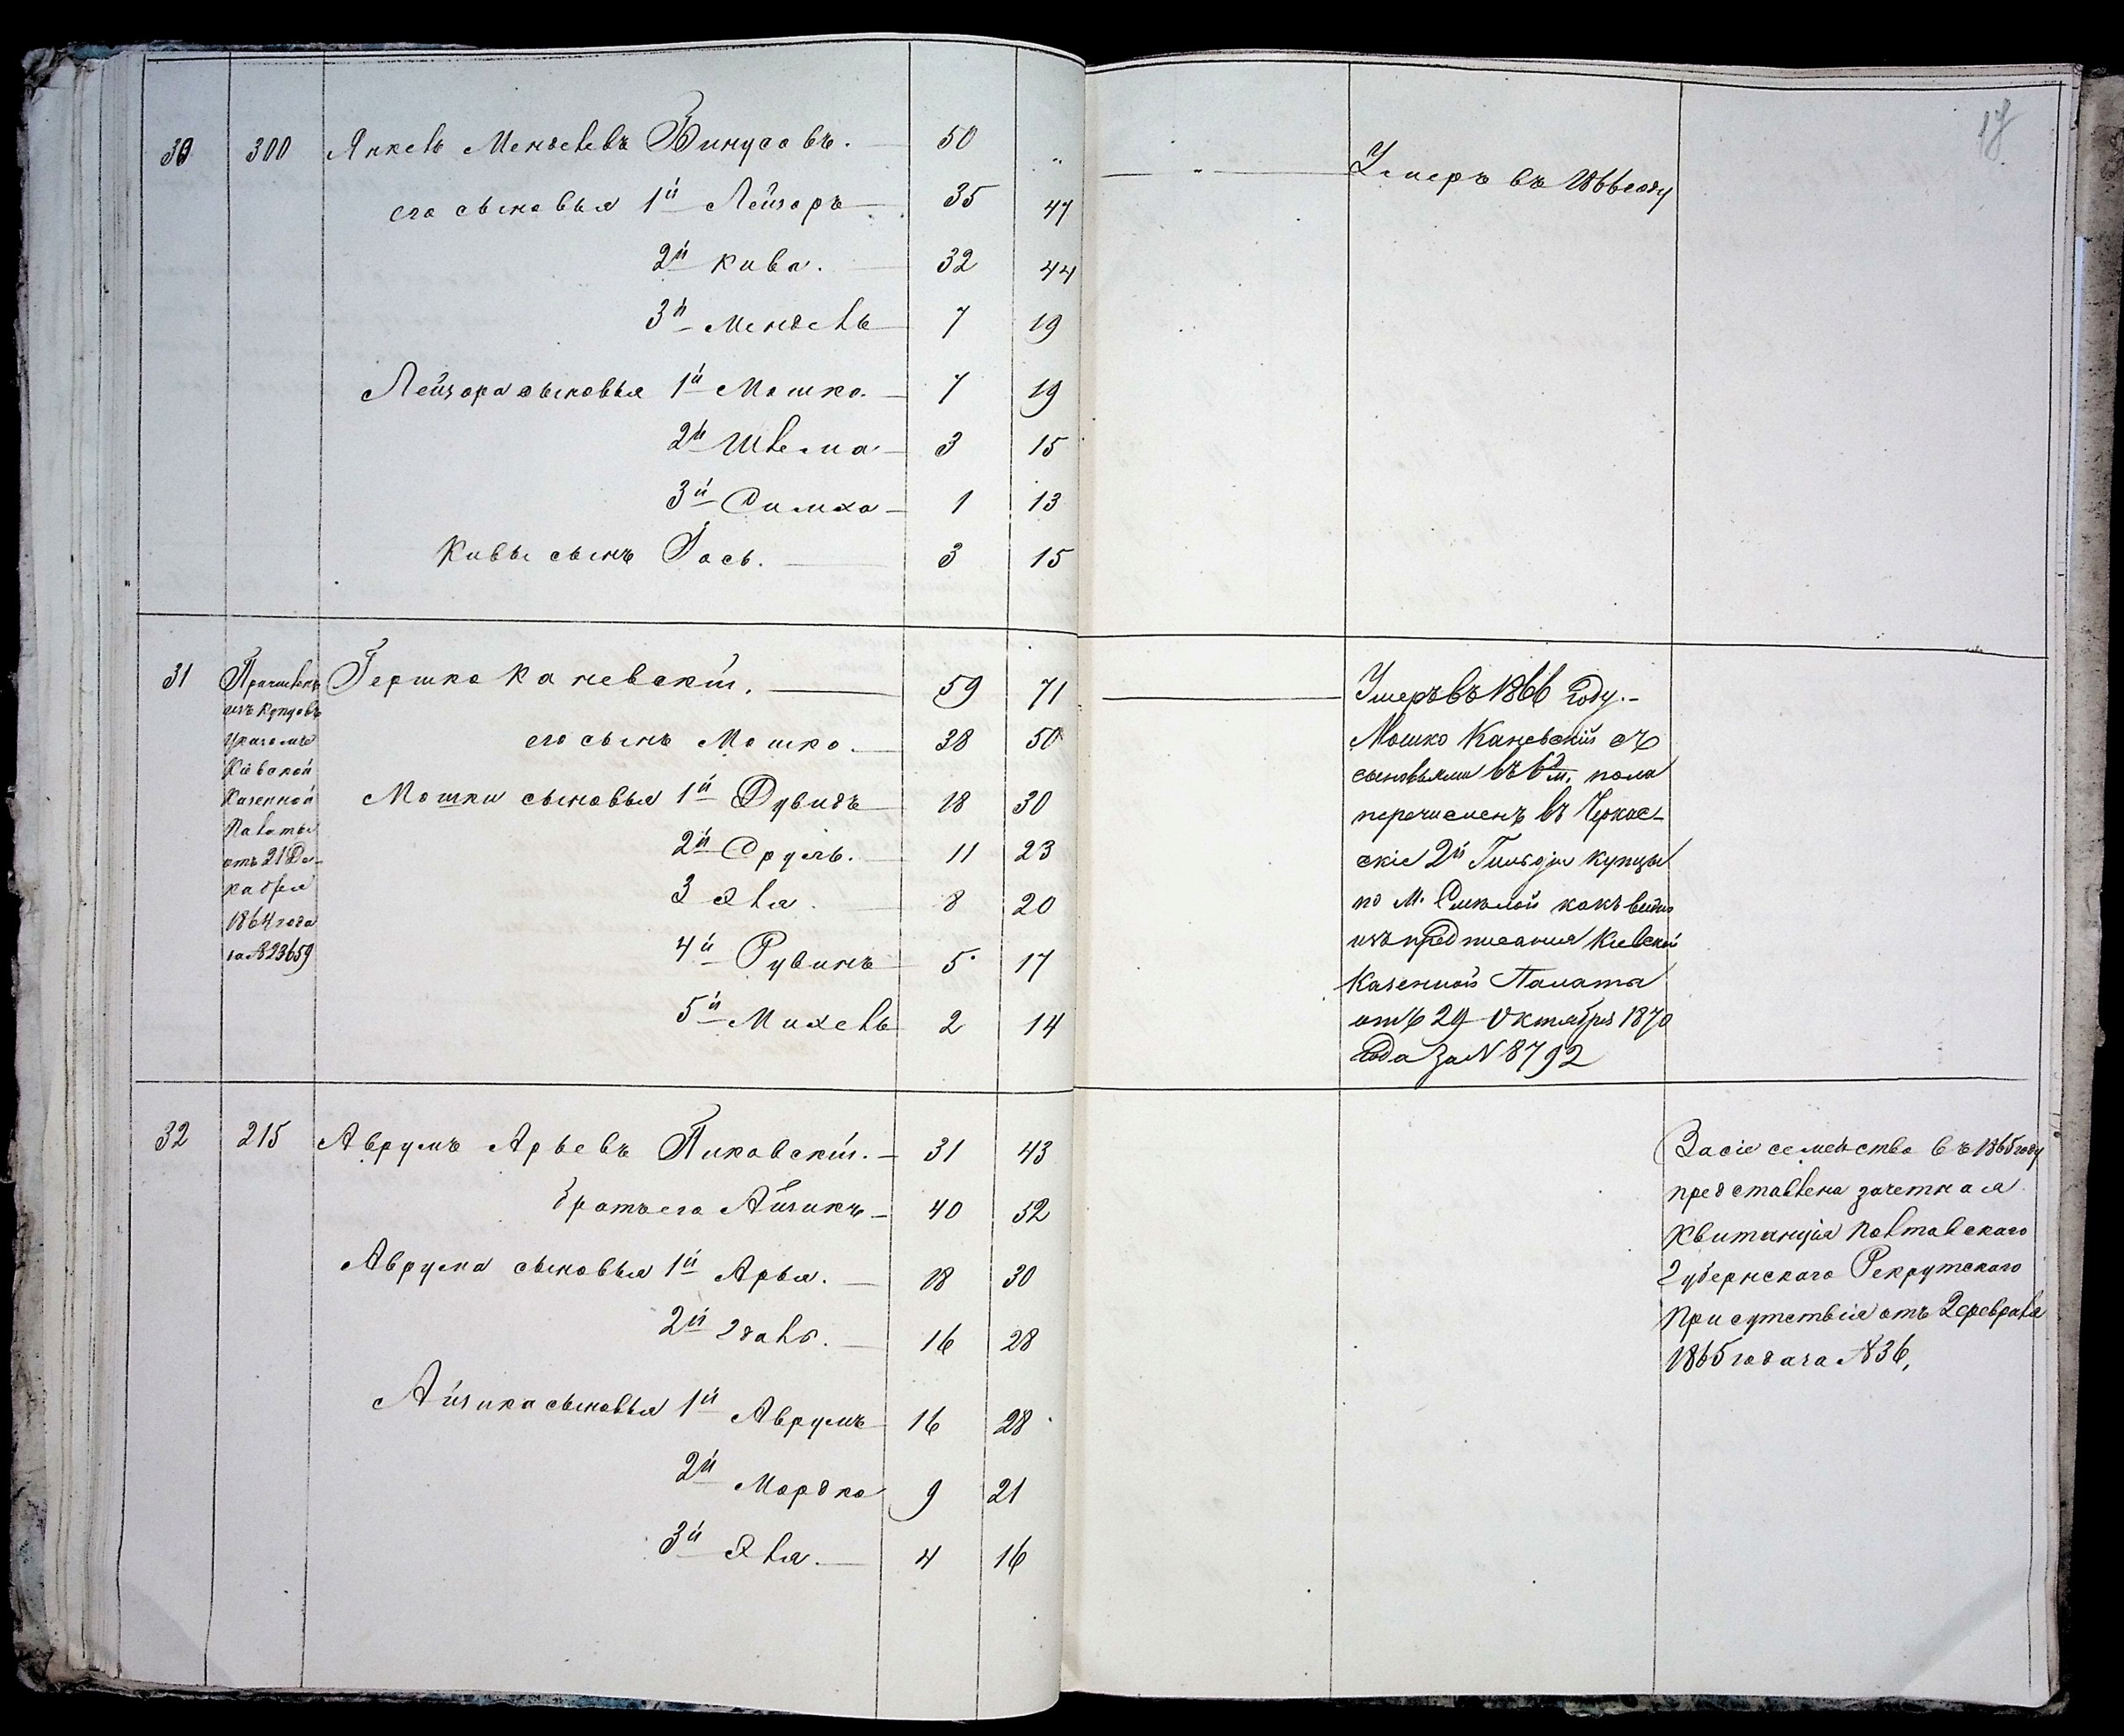 17
30 300 Янкель Менделевъ Винусовъ. 50 „ — „ — Умеръ въ 1866 году
его сыновья 1й Лейзоръ 35 47
2й Кива. 32 44
3й Мендель 7 19
Лейзора сыновья 1й Мошко. 7 19
2й Шлема 3 15
3й Симха 1 13
Кивы сынъ Іось. 3 15
31 Гершко Каневскій. 59 71
Причисленъ
изъ Купцовъ
Указомъ
Кіевской
Казенной
Палаты
отъ 21 Де-
кабря
1864 года
за №23659
его сынъ Мошко. 38 50
Мошки сыновья 1й Дувидъ 18 30
2й Сруль. 11 23
3 Эля. 8 20
4й Рувинъ 5 17
5й Михель 2 14
Умеръ въ 1866 Году.-
Мошко Каневскій съ
сыновьями въ 6 д. м. пола
перечисленъ въ Черкас-
скіе 2й Гильдіи Купцы
по М. Смѣлой какъ видно
изъ предписанія Кіевской
Казенной Палаты
отъ 29 Октября 1870
Года За N 8792
32 215 Аврумъ Арьевъ Пиковскій. 31 43
братъ его Айзикъ 40 52
Аврума сыновья 1й Арья. 18 30
2й Эдаль. 16 28
Айзика сыновья 1й Аврумъ 16 28
2й Мордко 9 21
3й Эля. 4 16
За сіе семейство въ 1865 году
представлена зачетная
Квитанція Полтавскаго
Губернскаго Рекрутскаго
Присутствія отъ 2 февраля
1865 года за №36,